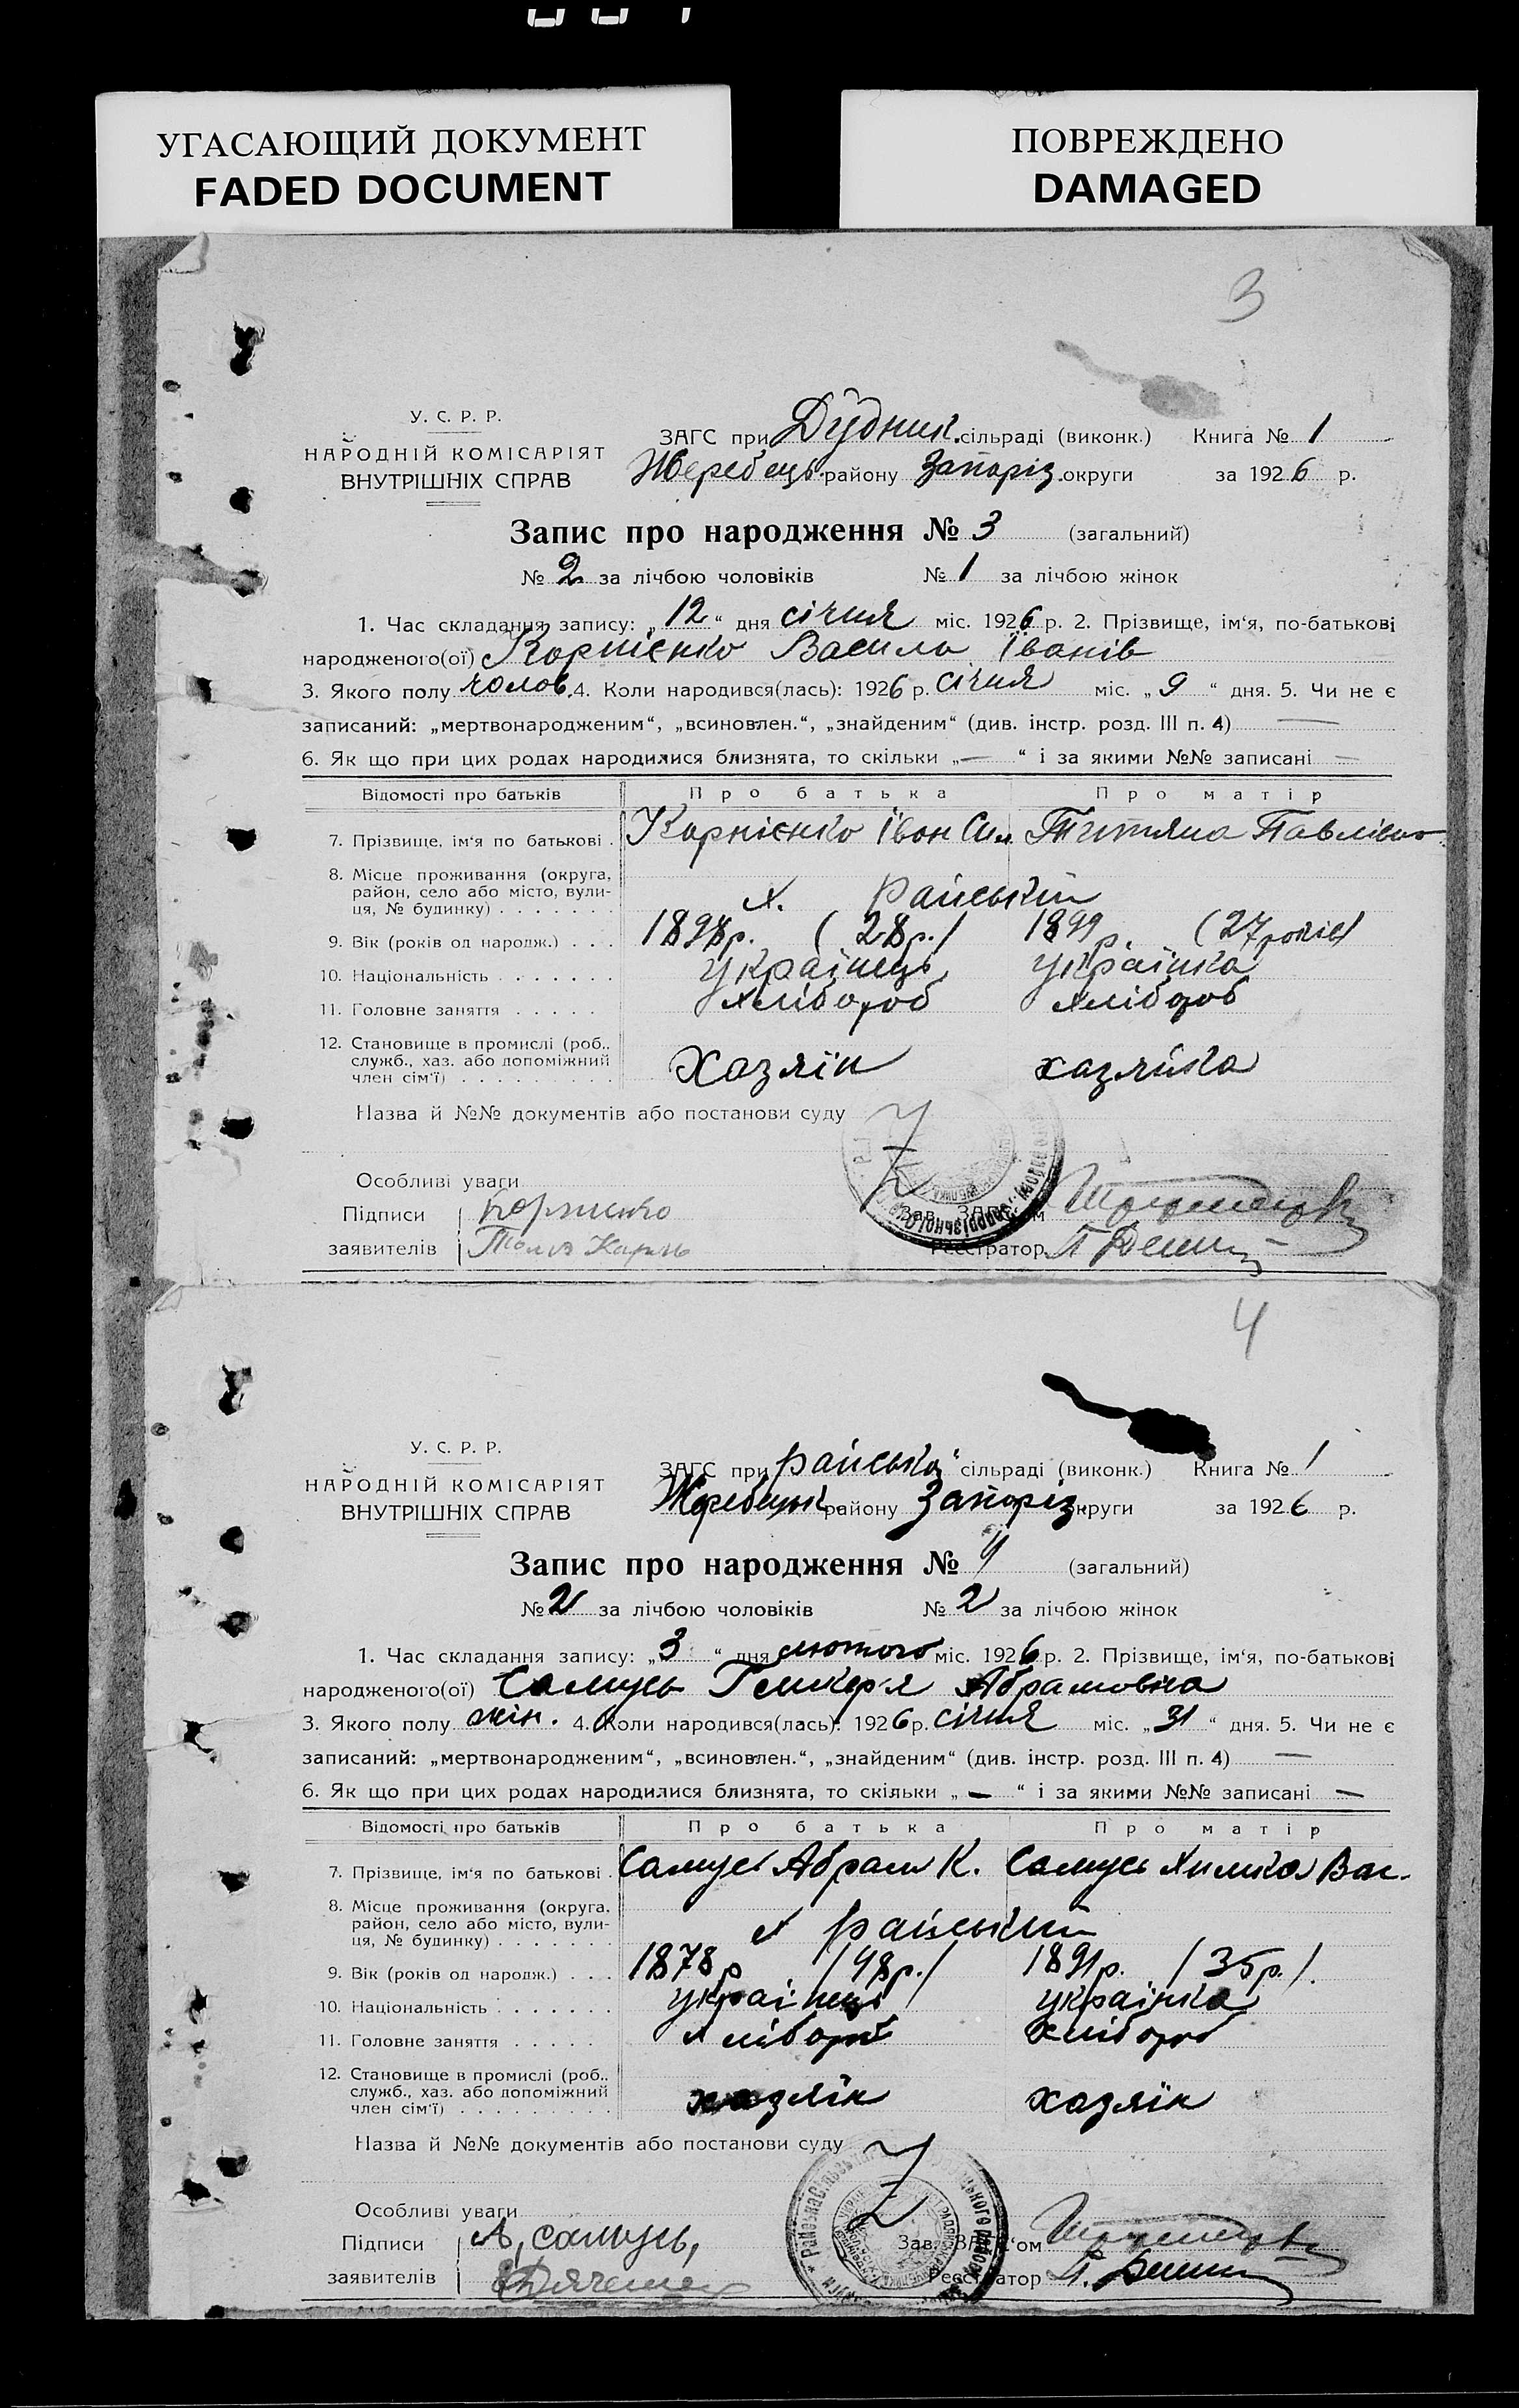 УГАСАЮЩИЙ ДОКУМЕНТ
FADED DOCUMENT
ПОВРЕЖДЕНО
DAMAGED
3
У. С. Р. Р.
НАРОДНІЙ КОМІСАРІЯТ
ВНУТРІШНІХ СПРАВ
ЗАГС при Дудник. сільраді (виконк.) Книга № 1
Жеребець. району Запоріз. округи за 1926 р.
Запис про народження № 3 (загальний)
№ 2 за лічбою чоловіків № 1 за лічбою жінок
1. Час складання запису: „12“ дня січня міс. 1926 р. 2. Прізвище, ім‘я, по-батькові
народженого(ої) Корнієнко Василь Іванів
3. Якого полу чолов. 4. Коли народився(лась): 1926 р. січня міс. „9“ дня. 5. Чи не є
записаний: „мертвонародженим“, „всиновлен.“, „знайденим“ (див. інстр. розд. III п. 4) —
6. Як що при цих родах народилися близнята, то скільки „—“ і за якими №№ записані —
Відомості про батьків Про батька Про матір
7. Прізвище, ім‘я по батькові . Корнієнко Іван Титяна Павлівна
8. Місце проживання (округа, район, село або місто, вули-ця, № будинку) . . . . . . . х. Райський
9. Вік (років од народж.) . . . 1898р. (28р.) 1899р. (27 років)
10. Національність . . . . . . . українець українка
11. Головне заняття . . . . . хлібороб хлібороб
12. Становище в промислі (роб., служб., хаз. або допоміжний член сім‘ї) . . . . . . . . . хазяїн хазяйка
Назва й №№ документів або постанови суду
Особливі уваги
Підписи Корниенко Зав. ЗАГС‘ом
заявителів Реєстратор
4
У. С. Р. Р.
НАРОДНІЙ КОМІСАРІЯТ
ВНУТРІШНІХ СПРАВ
ЗАГС при Райські сільраді (виконк.) Книга № 1
Жеребецьк. району Запоріз. округи за 1926 р.
Запис про народження № 4 (загальний)
№ 2 за лічбою чоловіків № 2 за лічбою жінок
1. Час складання запису: „3“ дня лютого міс. 1926 р. 2. Прізвище, ім‘я, по-батькові
народженого(ої) Самусь Гликер‘я Абрамовна
3. Якого полу жін. 4. Коли народився(лась): 1926 р. січня міс. „31“ дня. 5. Чи не є
записаний: „мертвонародженим“, „всиновлен.“, „знайденим“ (див. інстр. розд. III п. 4) —
6. Як що при цих родах народилися близнята, то скільки „—“ і за якими №№ записані —
Відомості про батьків Про батька Про матір
7. Прізвище, ім‘я по батькові . Самусь Абрам К. Самусь Химка Вас.
8. Місце проживання (округа, район, село або місто, вули-ця, № будинку) . . . . . . . х Райський
9. Вік (років од народж.) . . . 1878р /48р./ 1891р. /35р./.
10. Національність . . . . . . . українець українка
11. Головне заняття . . . . . хлібороб хлібороб
12. Становище в промислі (роб., служб., хаз. або допоміжний член сім‘ї) . . . . . . . . . хазяїн хазяїн
Назва й №№ документів або постанови суду
Особливі уваги
Підписи А, самусь, Зав. ЗАГС‘ом
заявителів Реєстратор